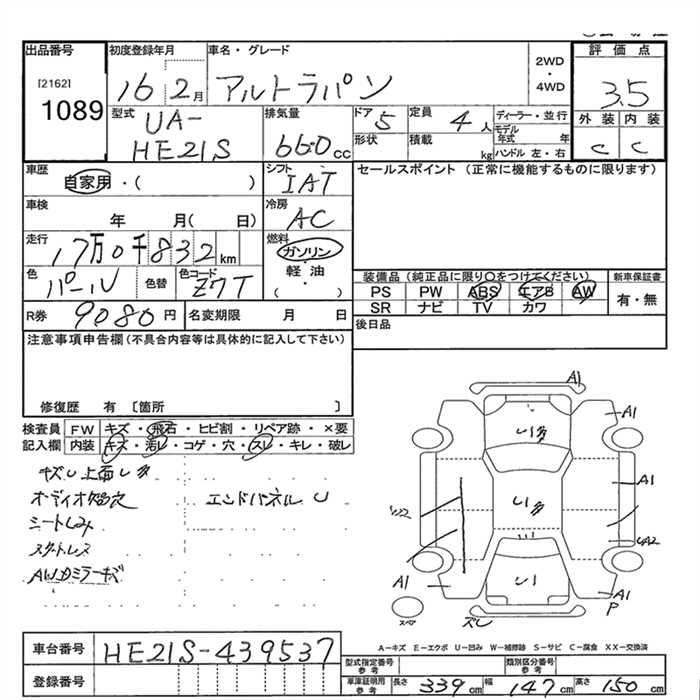 出品番号
[2162]
1089
初度登録年月
16 2月
車名・グレード
アルトラパン
2WD
・
4WD
評価点
3.5
型式
UA-
HE21S
排気量
660cc
ドア 5
形状
定員 4人
積載 kg
ディーラー・並行
モデル年式 年
ハンドル 左・右
外装 内装
C C
車歴
自家用・( )
シフト
IAT
セールスポイント (正常に機能するものに限ります)
車検
年 月( 日)
冷房
AC
走行
17万0千832km
燃料
ガソリン
軽油
( ・ )
色
パール
色替
色コード
Z7T
装備品(純正品に限り○をつけてください)
PS PW ABS エアB AW
SR ナビ TV カワ
新車保証書
有・無
R券 9080円
名変期限 月 日
後日品
注意事項申告欄(不具合内容等は具体的に記入して下さい)
修復歴 有 〔箇所 〕
検査員 FW キズ・飛石・ヒビ割・リペア跡・×要
記入欄 内装 キズ・汚レ・コゲ・穴・スレ・キレ・破レ
キズU上面U多
オーディオ欠品
エンドパネルU
シートしみ
スタットレス
AWカミラーキズ
A1
A1
U1多
A1
U1多
UA2
U1
A1
A1
P
ズレ
スペア
A-キズ E-エクボ U-凹み W-補修跡 S-サビ C-腐食 XX-交換済
車台番号 HE21S-439537
登録番号
型式指定番号 参考
類別区分番号 参考
車庫証明用 参考 長さ 339cm 幅 147cm 高さ 150cm